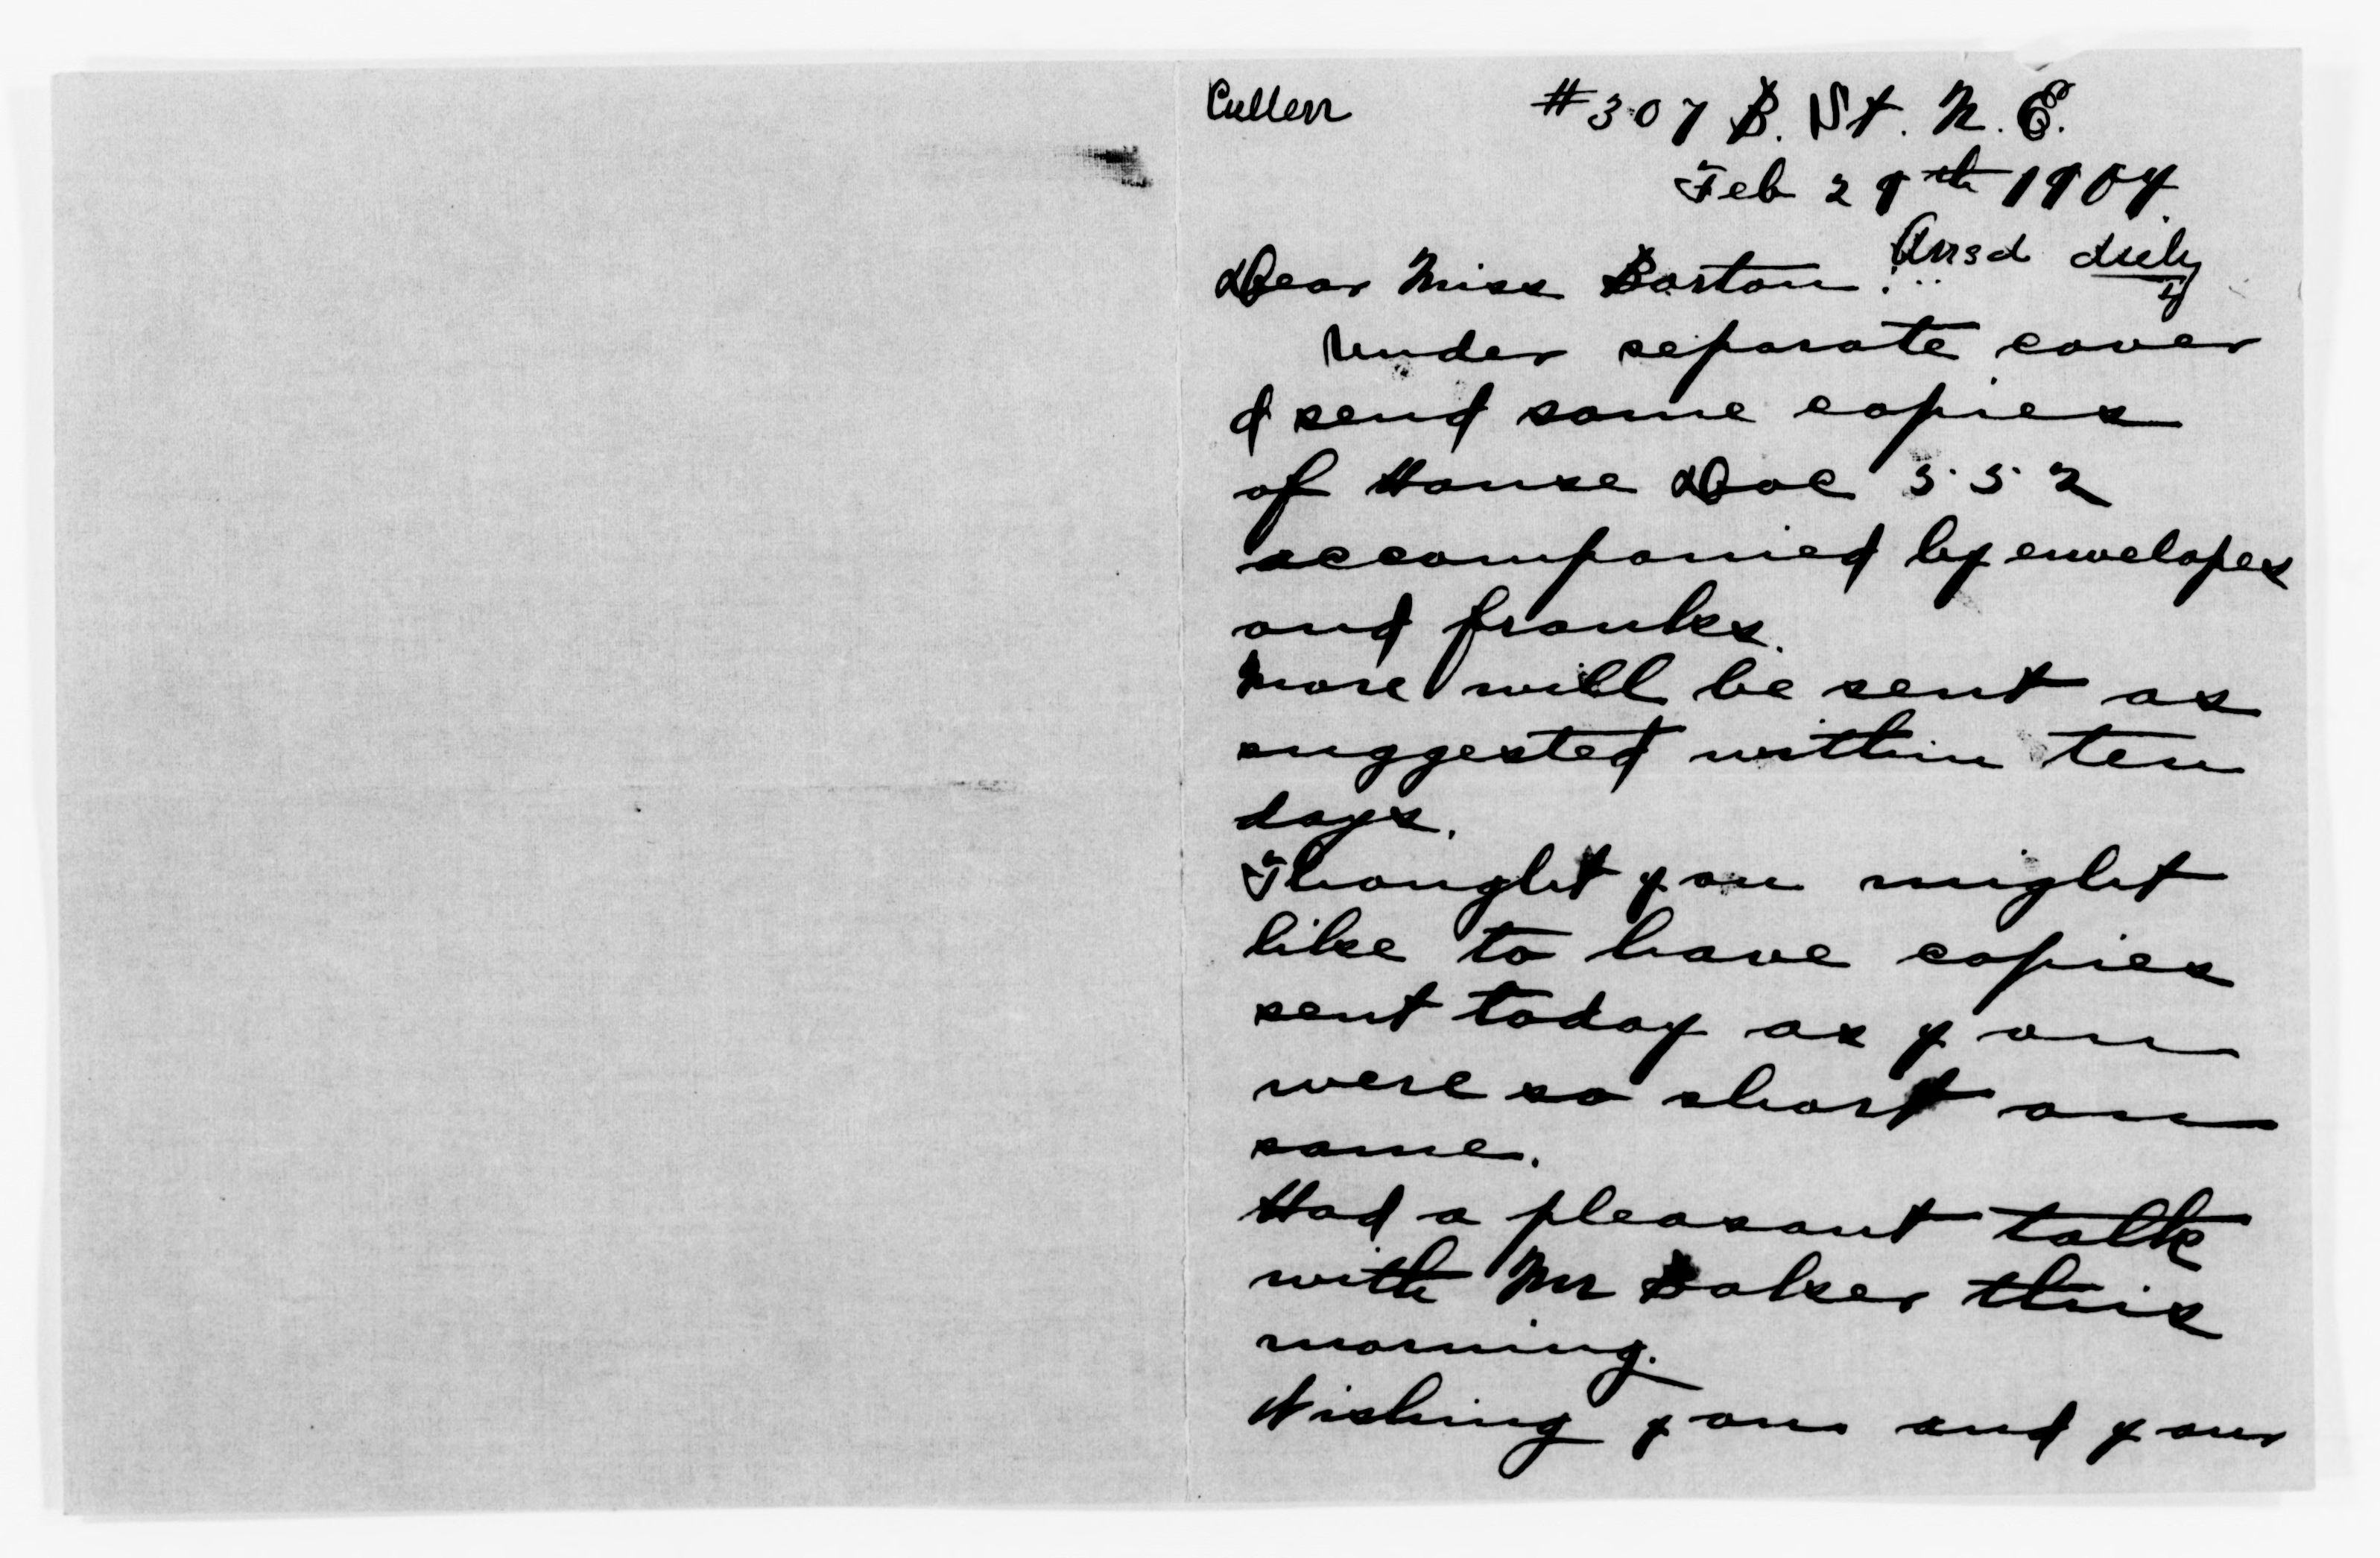 Cullen
#307 B. St. N. E.
Feb 29th 1904.
Ansd duly
Dear Miss Barton:..
Under separate cover
I send some copies
of House Doc 552
accompanied by envelopes
and franks.
More will be sent as
suggested within ten
days.
Thought you might
like to have copies
sent today as you
were so short on
same.
Had a pleasant talk
with Mr Baker this
morning.
Wishing you and your